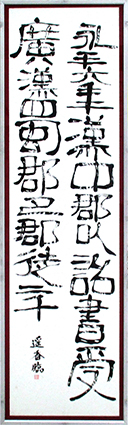 永平六年漢中郡以詔書受
廣漢蜀郡巴郡徒二千
遥香臨